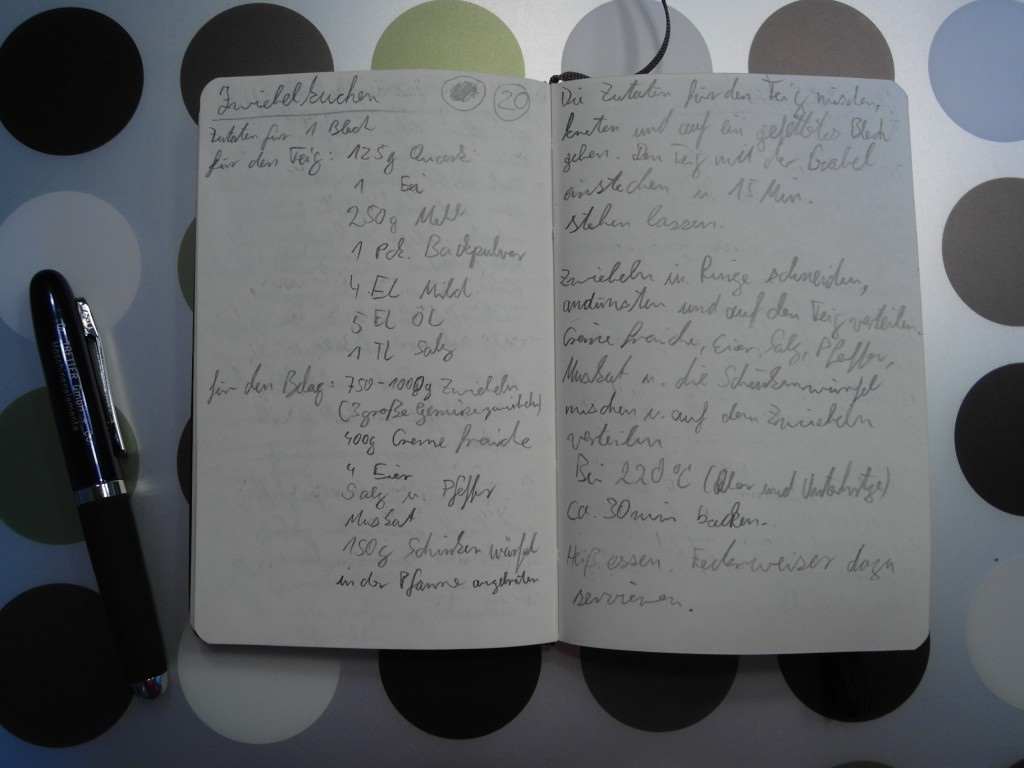 Zwiebelkuchen
20
Zutaten für 1 Blech
für den Teig: 125g Quark
1 Ei
250g Mehl
1 Pck. Backpulver
4 EL Milch
5 EL ÖL
1 TL Salz
für den Belag: 750-1000g Zwiebeln
(3 große Gemüsezwiebeln)
400g Creme fraiche
4 Eier
Salz u. Pfeffer
Muskat
150g Schinkenwürfel
in der Pfanne angebraten
Die Zutaten für den Teig mischen,
kneten und auf ein gefettetes Blech
geben. Den Teig mit der Gabel
einstechen u. 15 Min.
stehen lassen.
Zwiebeln in Ringe schneiden,
andünsten und auf den Teig verteilen.
Creme fraiche, Eier, Salz, Pfeffer,
Muskat u. die Schinkenwürfel
mischen u. auf den Zwiebeln
verteilen
Bei 220°C (Ober und Unterhitze)
ca. 30min backen.
Heiß essen. Federweiser dazu
servieren.